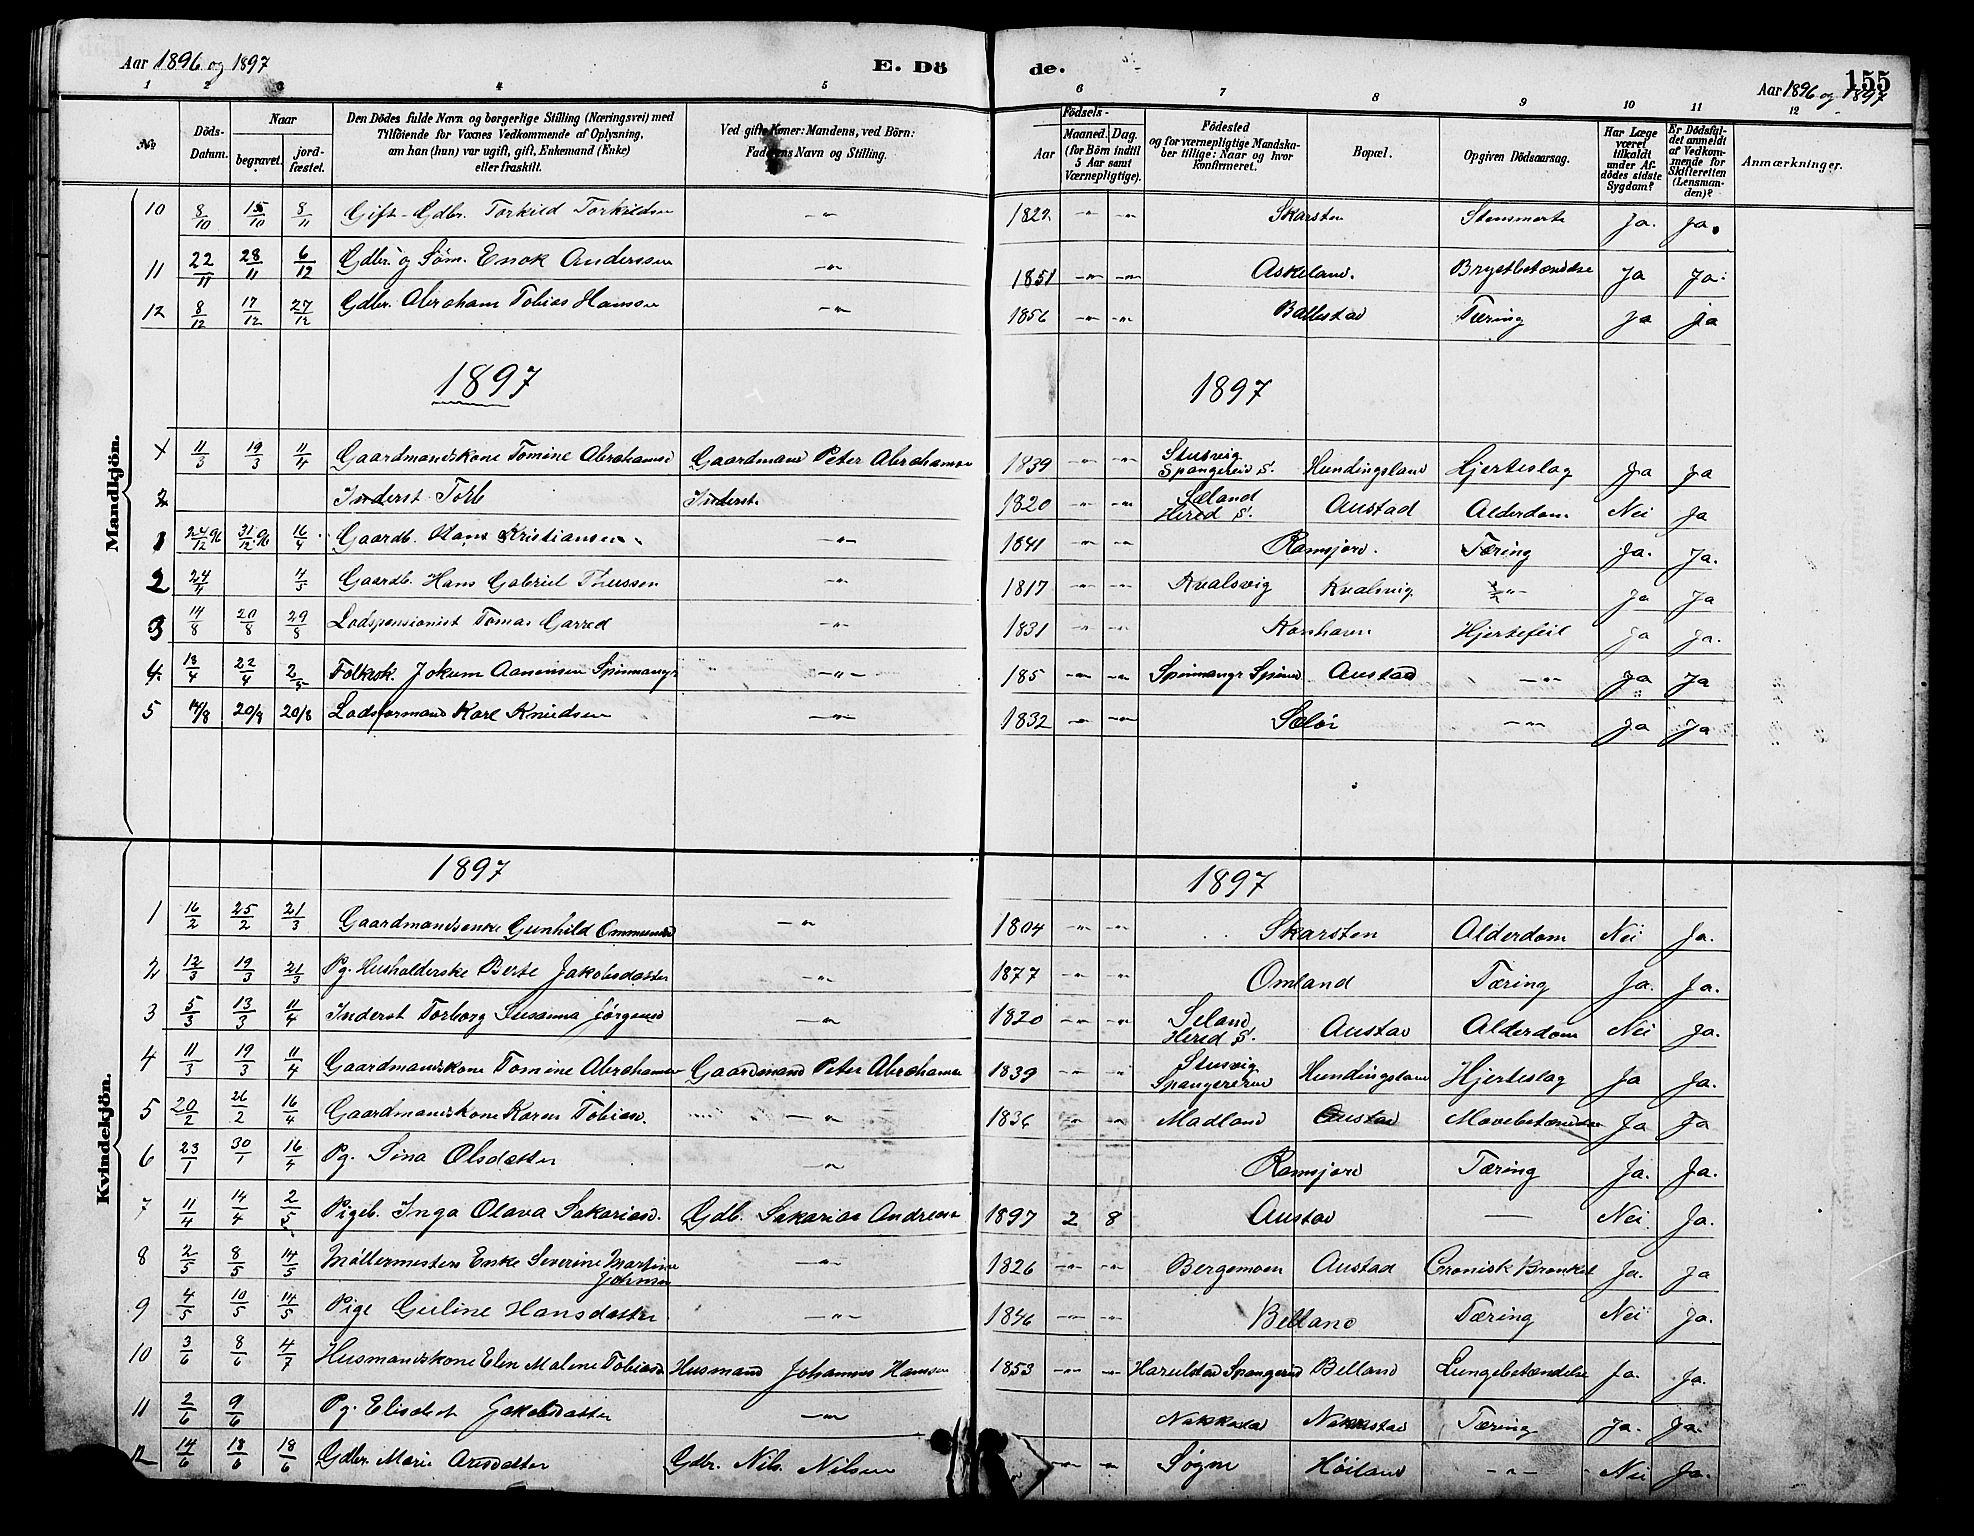 Aar 1896 og 1897 E. Dö de. Aar 1896 og 1897 155
1 2 3 4 5 6 7 8 9 10 11 12
No Döds-Datum. Naar begravet. jord-fæstet. Den Dödes fulde Navn og borgerlige Stilling (Næringsvei) med Tilföiende for Voxnes Vedkommende af Oplysning, om han (hun) var ugift, gift, Enkemand (Enke) eller fraskilt. Ved gifte Koner: Mandens, ved Börn: Faderens Navn og Stilling. Födsels- Aar Maaned. Dag. (for Börn indtil 5 Aar samt Værnepligtige). Födested og for værnepligtige Mandskaber tillige: Naar og hvor konfirmeret. Bopæl. Opgiven Dödsaarsag. Har Læge været tilkaldt under Afdödes sidste Sygdom? Er Dödsfaldet anmeldt af Vedkommende for Skifteretten (Lensmanden)? Anmærkninger.
Mandkjön.
10 8/10 15/10 8/11 Gift-Gdbr. Torkild Torkildsen -"- 1822 -"- -"- Skarsten Stensmerte Ja. Ja.
11 22/11 28/11 6/12 Gdbr. og Søm. Enok Anderssen -"- 1851 -"- -"- Askeland. Brystbetændelse Ja Ja.
12 8/12 17/12 27/12 Gdbr. Abraham Tobias Hansen -"- 1856 -"- -"- Ballestad Tæring Ja Ja
1897 1897
11/3 19/3 11/4 Gaardmandskone Tomine Abrahamse Gaardmand Peter Abrahamsen 1839 -"- -"- Stusvig Spangereid S. Hundingsland Hjerteslag Ja Ja
2 Inderst Torb Inderst 1820 -"- -"- Sæland Hered S. Austad Alderdom Nei Ja
1 24/12 96 31/12 96 16/4 Gaardb. Hans Kristiansen -"- 1841 -"- -"- Ramsjord. Tæring Ja. Ja.
2 24/4 4/5 Gaardb. Hans Gabriel -"- 1817 -"- -"- Kvalsvig Kvalsvig -"- Ja Ja
3 14/8 20/8 29/8 Lodspensionist Tomas Garred -"- 1831 -"- -"- Korshavn Hjertefeil Ja Ja.
4. 13/4 22/4 2/5 Folkesk. Jokum Aanensen Spinmangr -"- 185 -"- -"- Spinmangr Spind Austad -"- Ja Ja
5 14/8 20/8 20/8 Lodsformand Karl Knudsen -"- 1832 -"- -"- Sælør -"- Ja Ja
Kvindekjön.
1897 1897
1 16/2 25/2 21/3 Gaardmandsenke Gunhild Ommunds -"- 1804 -"- -"- Skarsten Alderdom Nei Ja.
2 12/3 19/3 21/3 Pg. Husholderske Berte Jakobsdatter -"- 1877 -"- -"- Omland Tæring Ja. Ja.
3 5/3 13/3 11/4 Inderst Torborg Susanna Jørgensd -"- 1820 -"- -"- Seland Hered S. Austad Alderdom Nei Ja.
4 11/3 19/3 11/4 Gaardmandskone Tomine Abrahamsen Gaardmand Peter Abrahamsen 1839 -"- " Stusvig Spangereid Hundingsland Hjerteslag Ja Ja.
5 20/2 26/2 16/4 Gaardmandskone Karen Tobiasd. -"- 1836 -"- -"- Madland Austad Mavebetændelse Ja Ja
6 23/1 30/1 16/4 Pg. Sina Olsdatter -"- Ramsjord Tæring Ja. Ja.
7 11/4 14/4 2/5 Pigeb. Inga Olava Sakariasd. Gdb. Sakarias Andreas 1897 2 8 Austad — Nei Ja.
8 2/5 8/5 14/5 Møllermesters Enke Severine Martine Johnsen -"- 1826 -"- -"- Bergemoen Austad Cronisk Bronket Ja. Ja
9 4/5 10/5 14/5 Pige Guline Hansdatter -"- 1846 -"- -"- Belland Tæring Nei Ja.
10 3/6 8/6 4/7 Husmandskone Elen Malene Tobiasd. Husmand Johannes Hansen 1853 -"- -"- Harulstad Spangereid Belland Lungebetændelse Ja. Ja.
11 2/6 9/6 Pg. Elisabet Jakobsdatter -"- Nakkestad Nakkestad Tæring Ja. Ja.
12 14/6 18/6 18/6 Gdbr. Marie Aresdatter Gdbr. Nils Nilsen -"- -"- Søgne Høiland -"- Nei Ja.